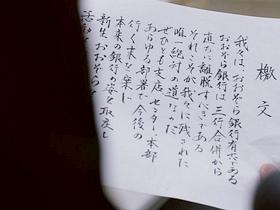 檄文
我々はおおぞら銀行有志である
おおぞら銀行は三行合併から
直ちに離脱すべきである
それこそが我々に残された
唯一絶対の道なのだ
ぜひとも支店、センター、本部
あらゆる部署で今後の
行く末を案じ
本来の銀行の姿を取戻し
新生おおぞら